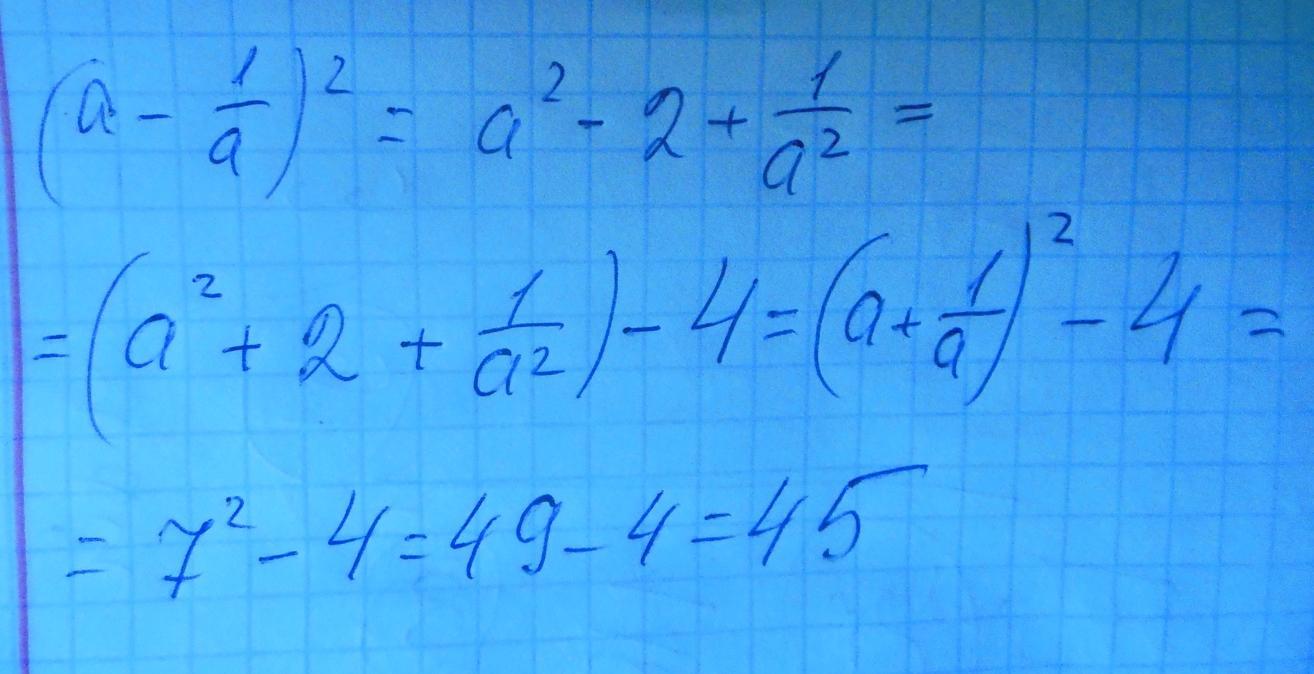 (a - 1/a)² = a² - 2 + 1/a² =
= (a² + 2 + 1/a²) - 4 = (a + 1/a)² - 4 =
= 7² - 4 = 49 - 4 = 45